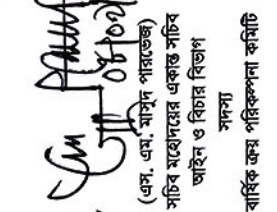 (এস. এম. মাসুদ পারভেজ)
সচিব মহোদয়ের একান্ত সচিব
আইন ও বিচার বিভাগ
সদস্য
বার্ষিক ক্রয় পরিকল্পনা কমিটি